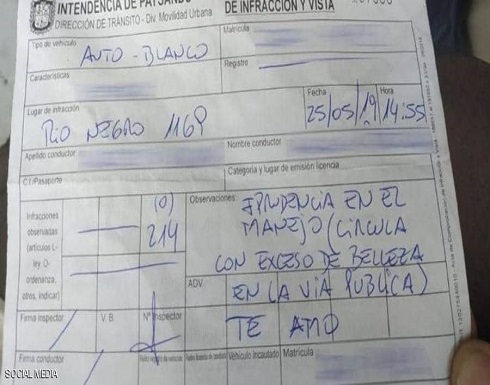 INTENDENCIA DE PAYSANDÚ
DIRECCIÓN DE TRÁNSITO - Div. Movilidad Urbana
DE INFRACCIÓN Y VISTA
Tipo de vehículo
AUTO - BLANCO
Matrícula
Características
Registro
Lugar de infracción
RIO NEGRO 1169
Fecha
25/05/19
Hora
14:55
Apellido conductor
Nombre conductor
C.I./Pasaporte
Categoría y lugar de emisión licencia
Infracciones
observadas
(artículos L-
ley, O-
ordenanza,
otros, indicar)
(0)
214
Observaciones
EN EL
MANEJO (CIRCULA
CON EXCESO DE BELLEZA
EN LA VIA PUBLICA)
TE AMO
ADV.
Firma inspector
V. B.
Nº Inspector
Firma conductor
Vehículo incautado
Matrícula
SOCIAL MEDIA